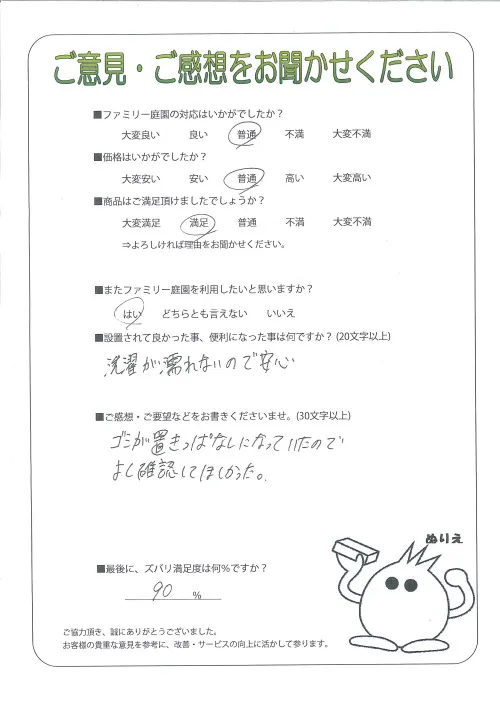 ご意見・ご感想をお聞かせください
■ファミリー庭園の対応はいかがでしたか？
大変良い 良い 普通 不満 大変不満
■価格はいかがでしたか？
大変安い 安い 普通 高い 大変高い
■商品はご満足頂けましたでしょうか？
大変満足 満足 普通 不満 大変不満
⇒よろしければ理由をお聞かせください。
■またファミリー庭園を利用したいと思いますか？
はい どちらとも言えない いいえ
■設置されて良かった事、便利になった事は何ですか？(20文字以上)
洗濯が濡れないので安心
■ご感想・ご要望などをお書きくださいませ。(30文字以上)
ゴミが置きっぱなしになっていたので
よく確認してほしかった。
ぬりえ
■最後に、ズバリ満足度は何％ですか？
90 %
ご協力頂き、誠にありがとうございました。
お客様の貴重な意見を参考に、改善・サービスの向上に活かして参ります。